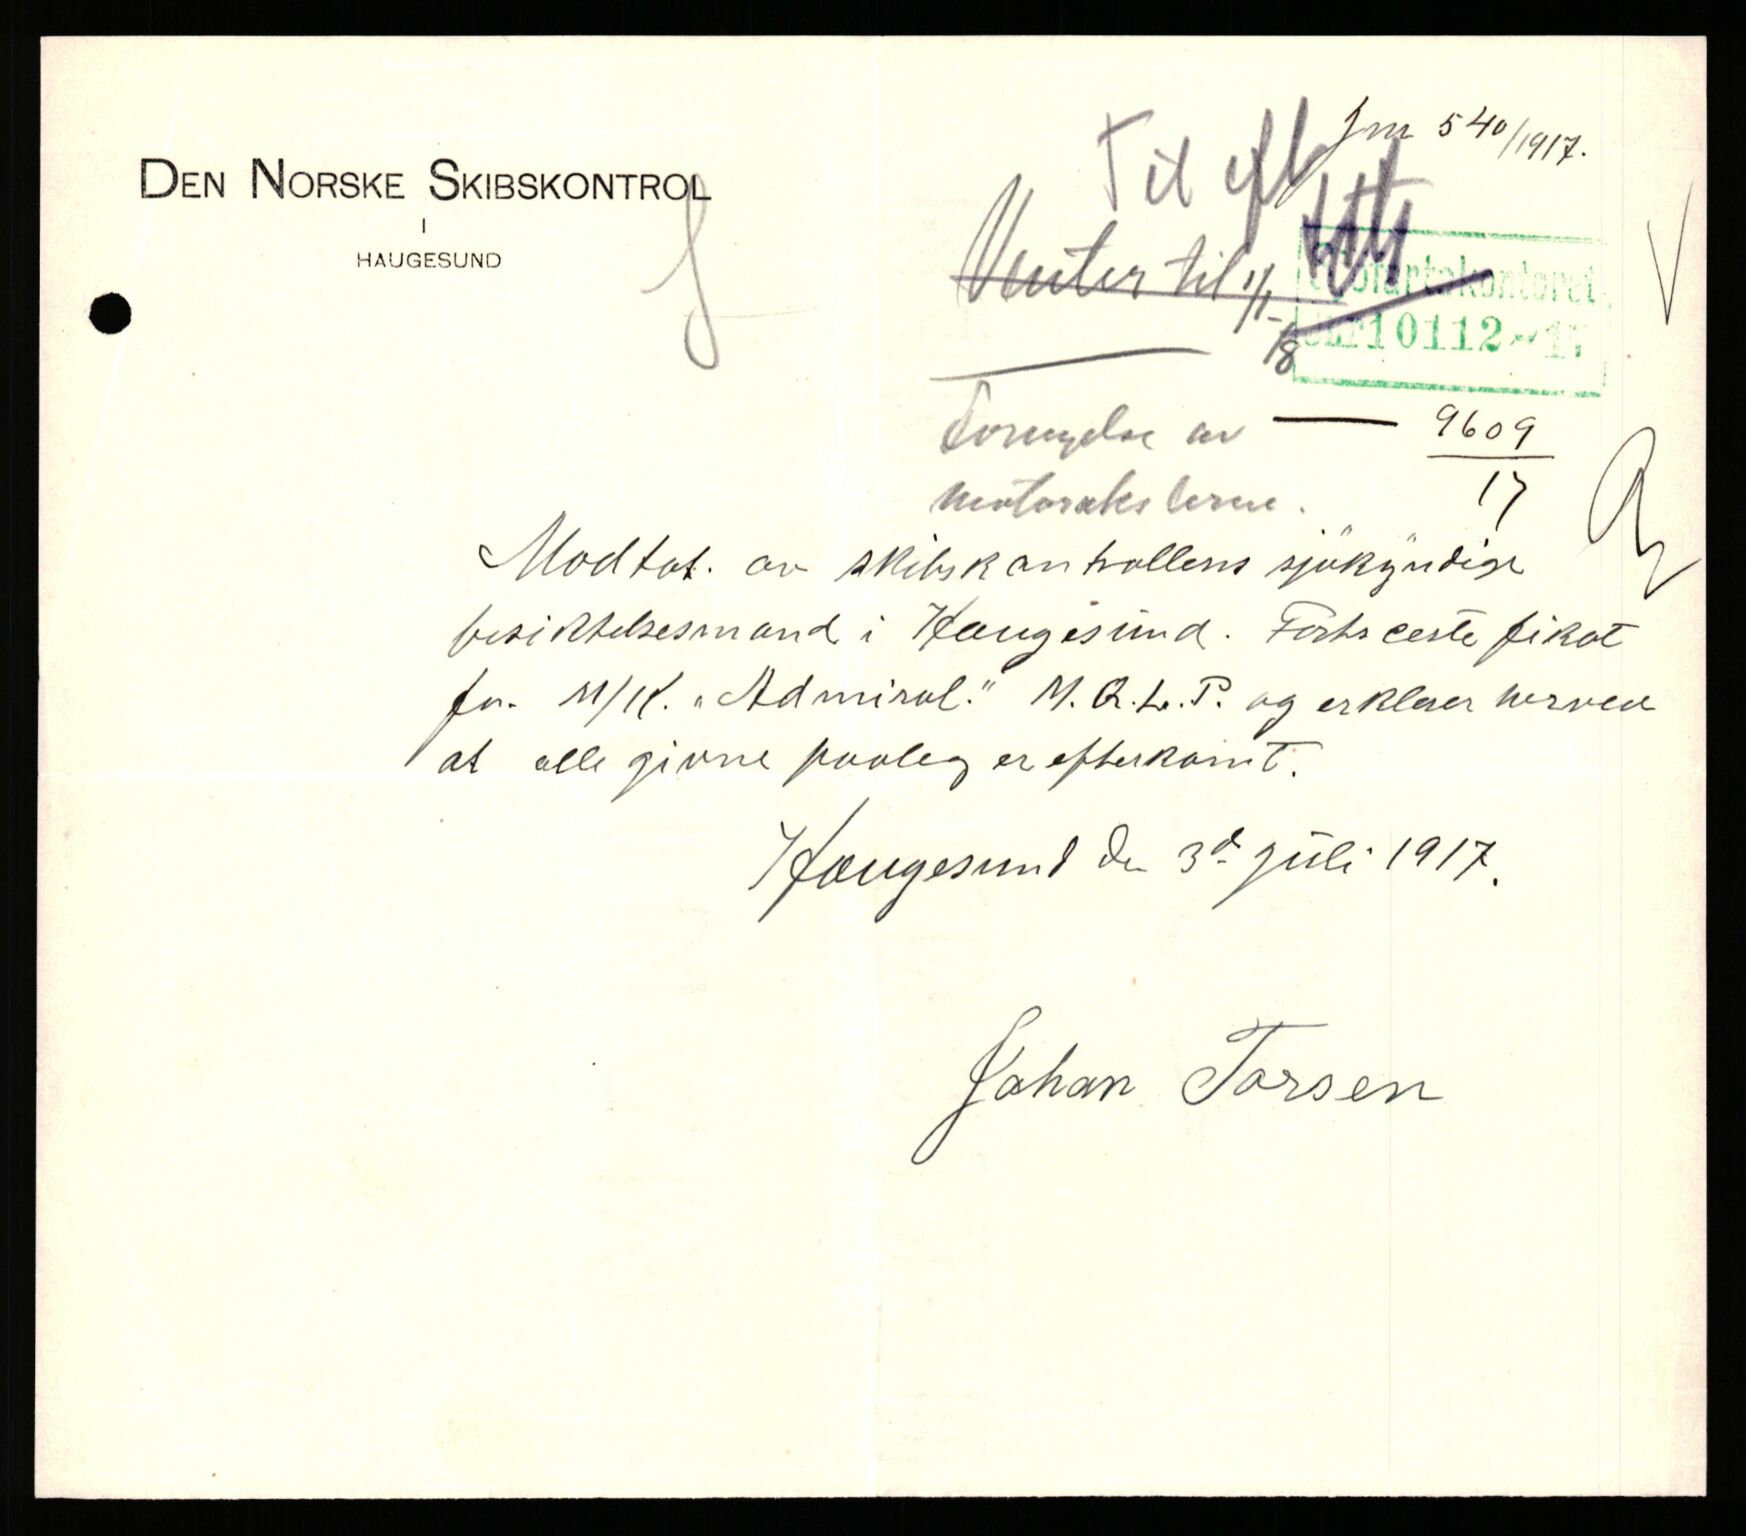 DEN NORSKE SKIBSKONTROL
I
HAUGESUND
Jm 540/1917.
Til
Venter til 1/1-18
Sjøfartskontoret
Jnr 10112-17
Fornyelse av — 9609
motorakslerne. 17
Modtat. av skibskontrollens sjökÿndige
besiktelsesmand i Haugesund. Fartscertefikat
for. M/K. „Admiral." M.Q.L.P. og erklær herved
at alle givne paaleg er efterkomt.
Haugesund den 3d- juli 1917.
Johan Torsen